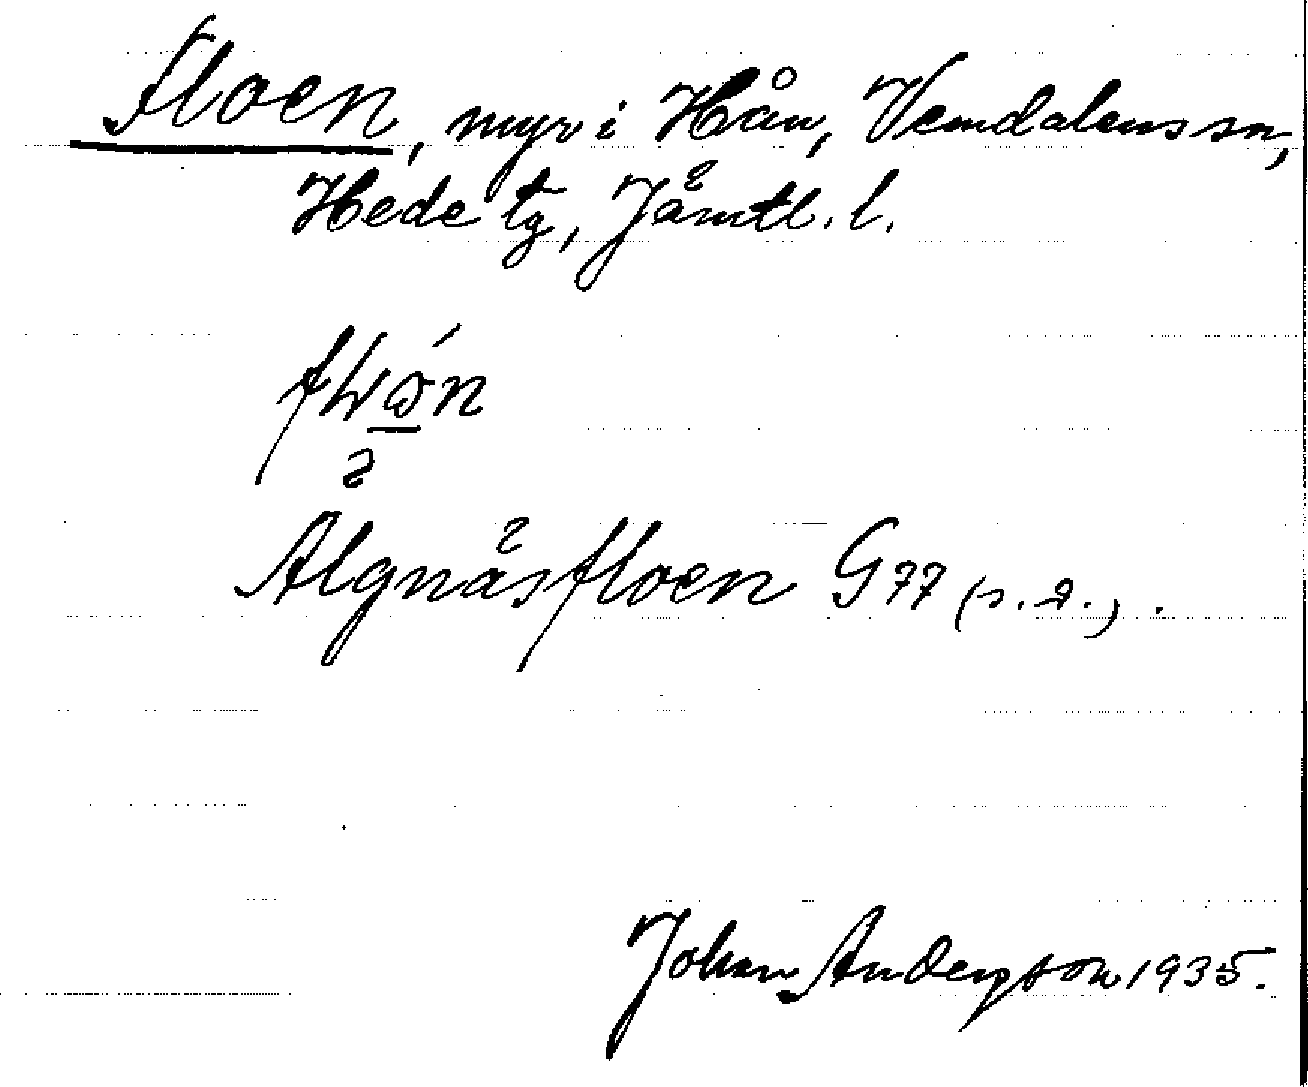 Floen, myr i Hån, Vemdalens sn,
Hede tg, Jämtl. l.
Älgnäsfloen G77 (s. d.).
Johan Anderson 1935.